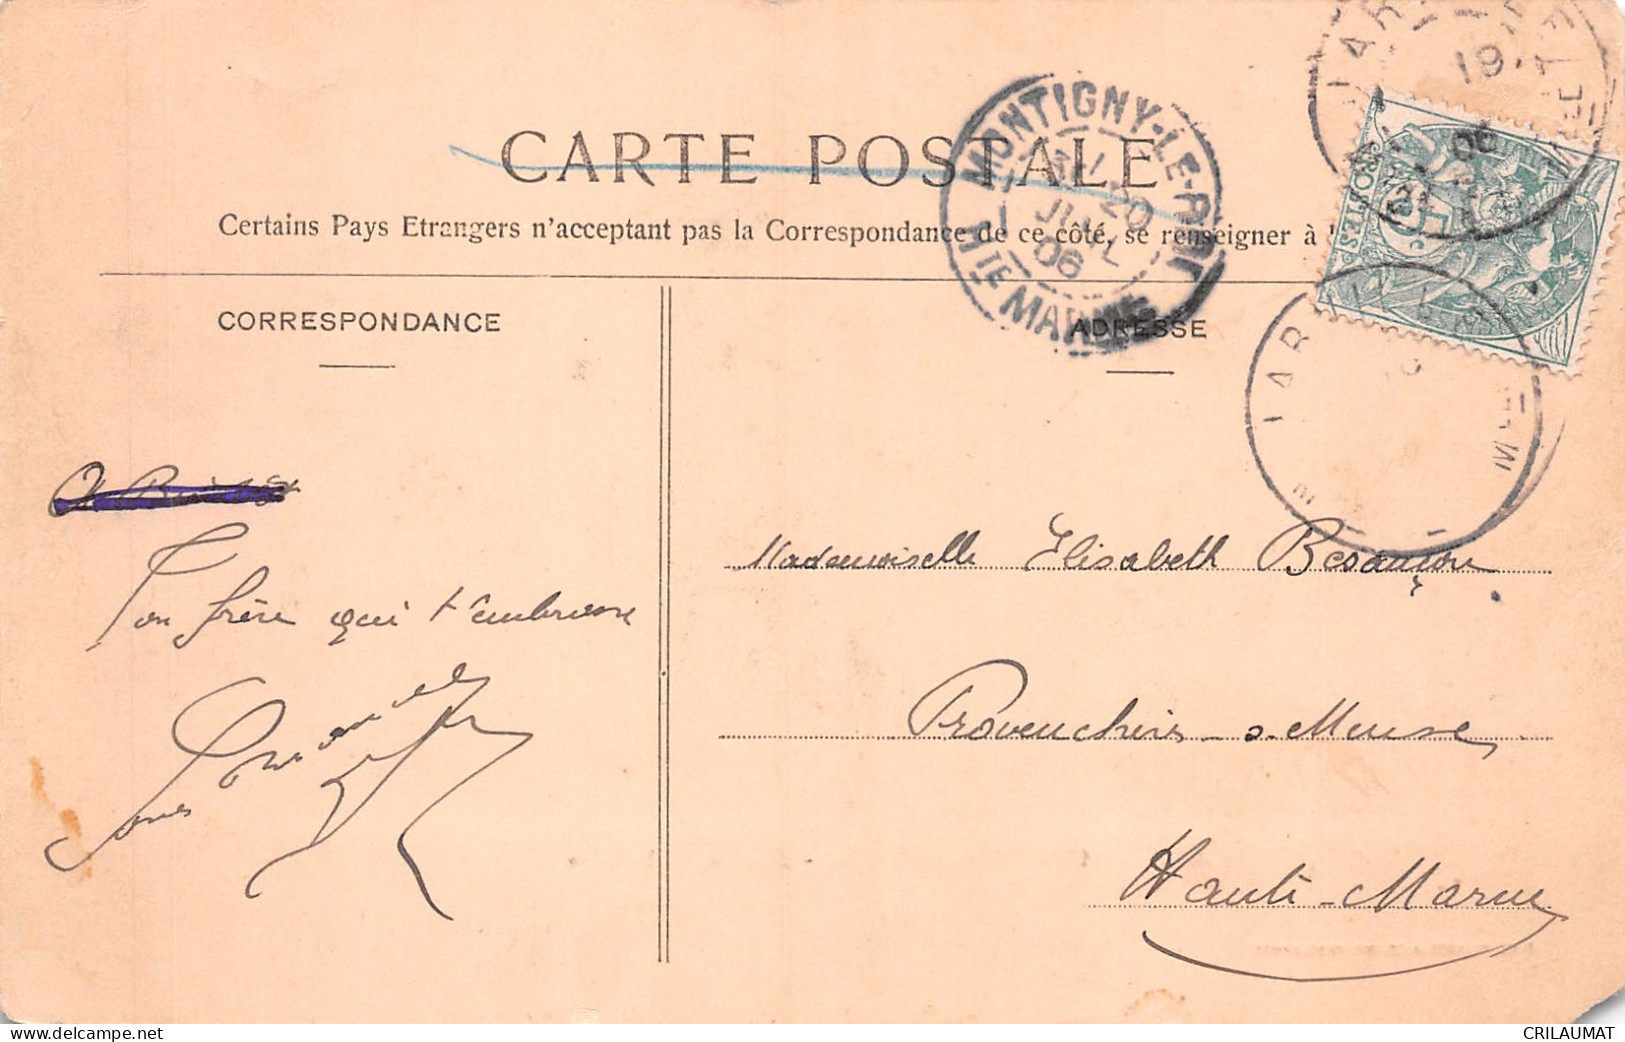 CARTE POSTALE
Certains Pays Etrangers n'acceptant pas la Correspondance de ce côté, se renseigner à
MONTIGNY-LE-ROI
20
JUIL
06
HTE MARNE
19
06
POSTES
5c
CORRESPONDANCE
ADRESSE
Ton frère qui t'embrasse
Mademoiselle Elisabeth Besançon
Provenchères-s-Meuse
Haute-Marne
CRILAUMAT